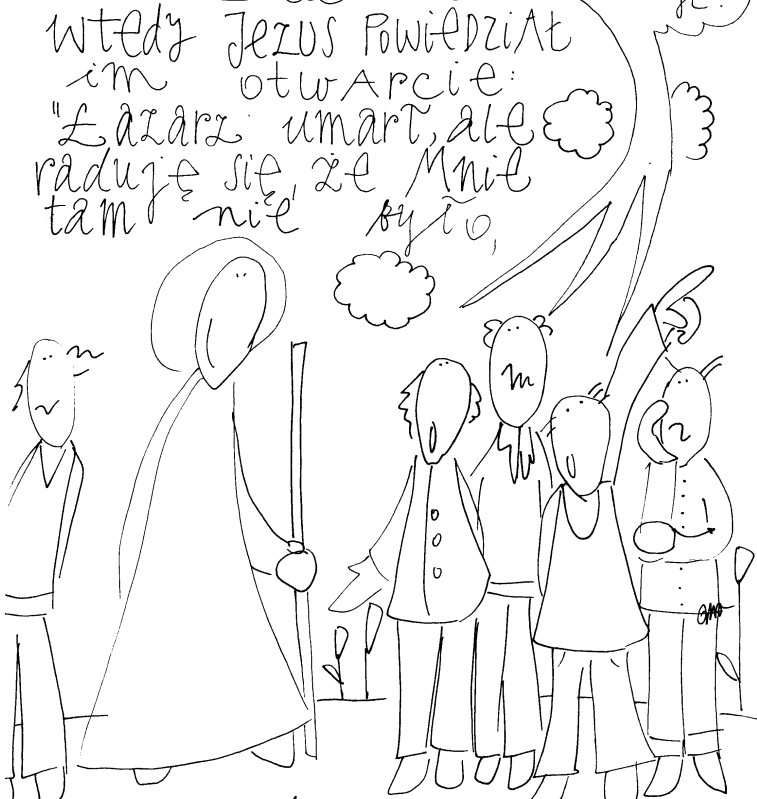 wtedy Jezus powiedział
im otwarcie:
"Łazarz umarł, ale
raduję się, że Mnie
tam nie było,